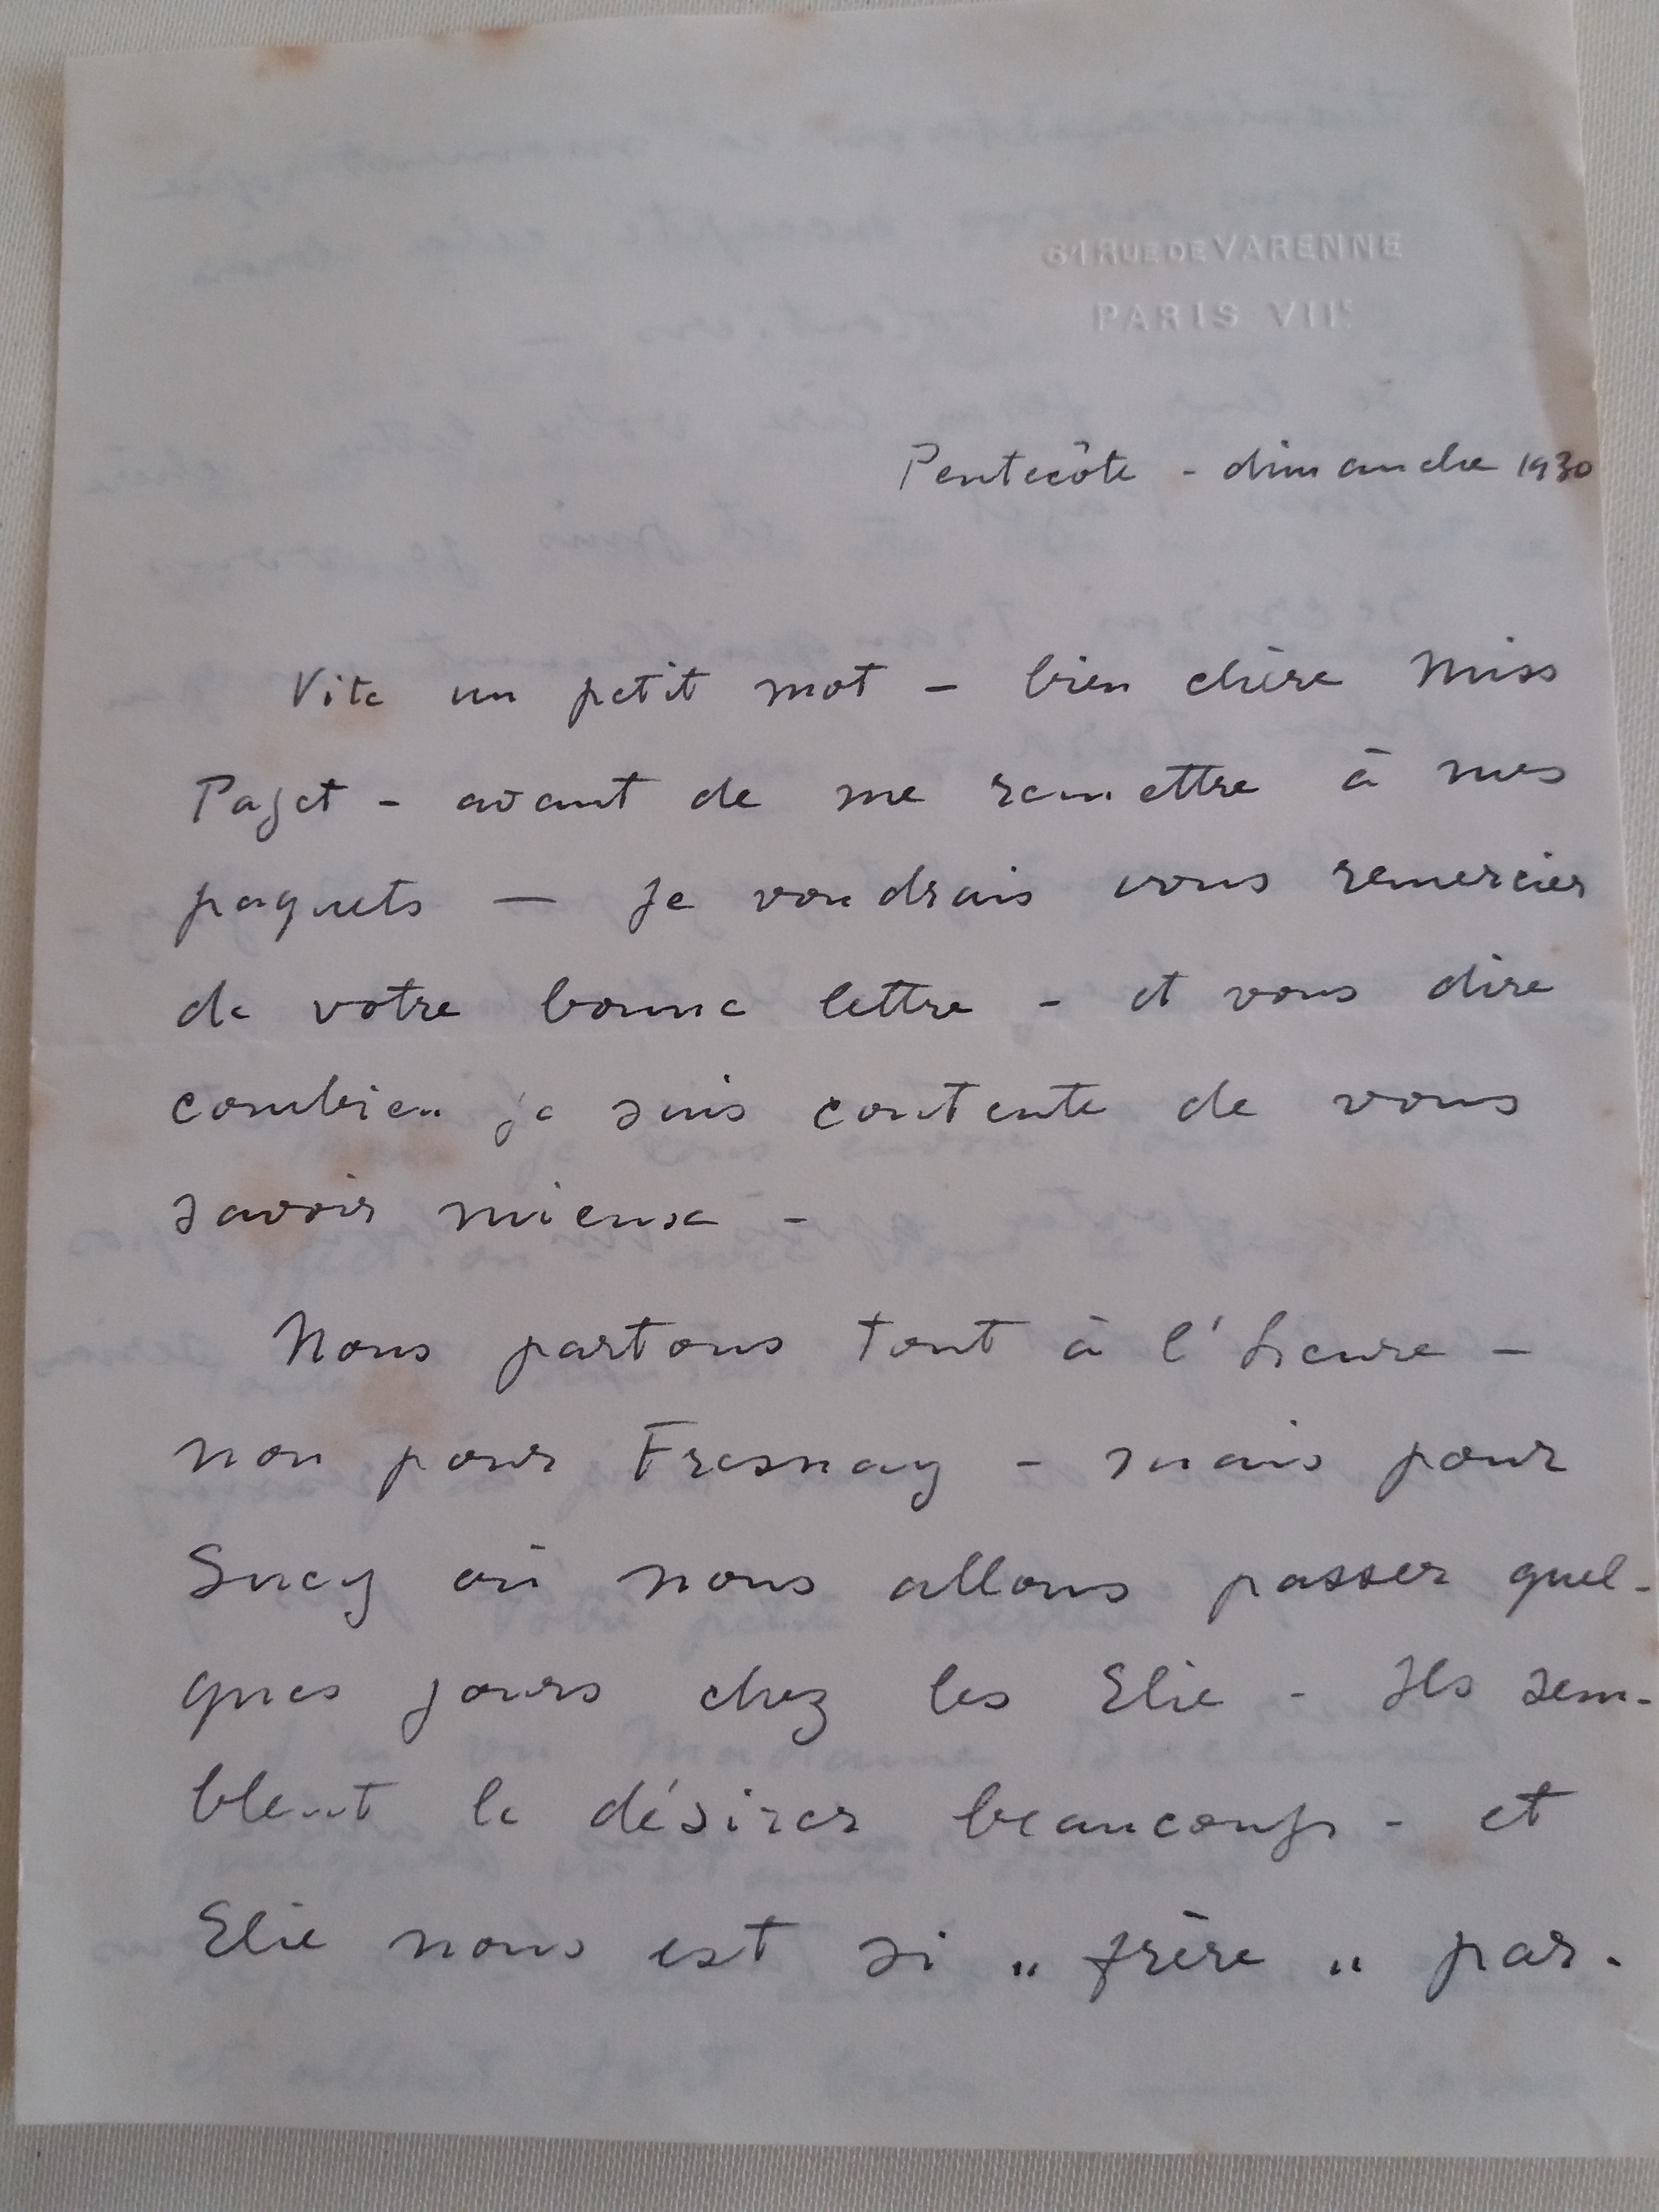 61 RUE DE VARENNE
PARIS VIIe
Pentecôte - dimanche 1930
Vite un petit mot - bien chère Miss
Paget - avant de me remettre à mes
paquets — je voudrais vous remercier
de votre bonne lettre - et vous dire
combien je suis contente de vous
savoir mieux -
Nous partons tout à l'heure -
non pour Fresnay - mais pour
Sucy où nous allons passer quel-
ques jours chez les Elie - Ils sem-
blent le désirer beaucoup - et
Elie nous est si " frère " par-